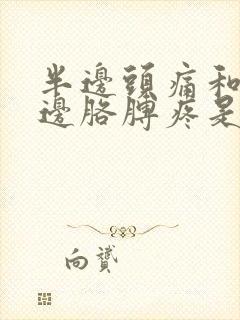 半邊頭痛和
邊胳膊疼是
向贇